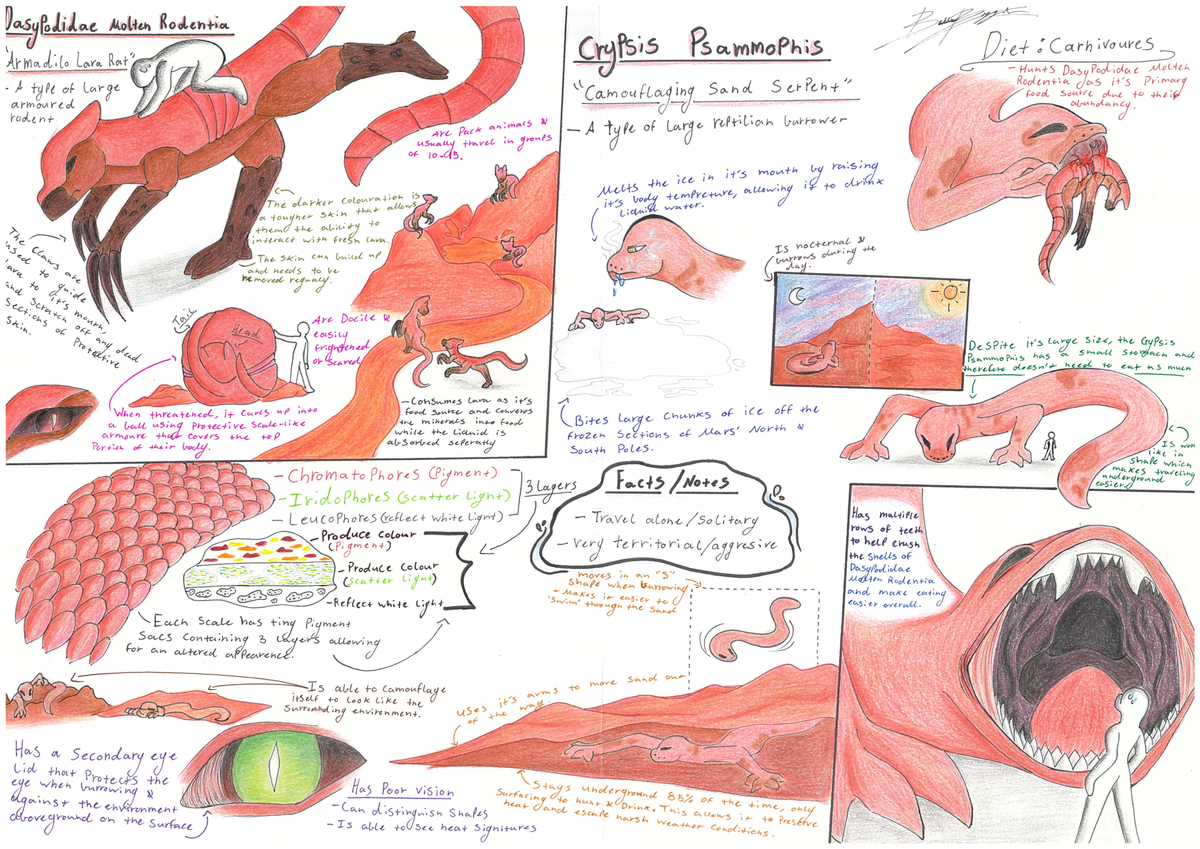 Dasypodidae Molten Rodentia
"Armadilo Lara Rat"
- A type of Large
armoured
rodent
Are Pack animals &
usually travel in groups
of 10-15.
The darker colouration is
a tougher skin that allows
them the ability to
interact with fresh lara.
The skin can build up
and needs to be
removed regualy.
The claws are
used to guide
lara to it's mouth,
and scratch off and dead
sections of Protective
skin.
Tail
Head
Are Docile &
easily
frightened
or scared
When threatened, it curls up into
a ball using Protective scale-like
armoure that covers the top
Portion of their body.
- Consumes Lara as it's
food source and converts
the minerals into food
while the liquid is
absorbed seperatly
Crypsis Psammophis
"Camouflaging Sand Serpent"
- A type of large reptilian burrower
Melts the ice in it's mouth by raising
it's body tempreture, allowing it to drink
liquid water.
Is nocternal &
burrows during the
day.
Bites large chunks of ice off the
frozen sections of Mars' North &
South Poles.
Diet: Carnivoures
- Hunts Dasypodidae Molten
Rodentia as it's Primary
food source due to their
abundancy.
Despite it's large size, the Crypsis
Psammophis has a small stomach and
therefore doesn't need to eat as much
Is worm
like in
shape which
makes traveling
underground
easier.
- Chromatophores (Pigment)
- Iridophores (scatter Light)
- Leucophores (reflect white light)
3 layers
- Produce colour
(Pigment)
- Produce colour
(scatter light)
- Reflect white light
Each scale has tiny Pigment
Sacs containing 3 layers allowing
for an altered appearence.
Facts/Notes
- Travel alone/solitary
- very territorial/aggresive
moves in an "S"
shape when burrowing
- Makes it easier to
'swim' through the sand
Has multiple
rows of teeth
to help crush
the shells of
Dasypodidae
Molten Rodentia
and make eating
easier overall.
Is able to camouflage
itself to look like the
surrounding environment.
Uses it's arms to move sand out
of the way
Has a secondary eye
lid that Protects the
eye when burrowing &
against the environment
aboveground on the surface
Has Poor vision
- Can distinguish shapes
- Is able to see heat signitures
Stays underground 85% of the time, only
surfacing to hunt & Drink. This allows it to Preserve
heat and escape harsh weather conditions.